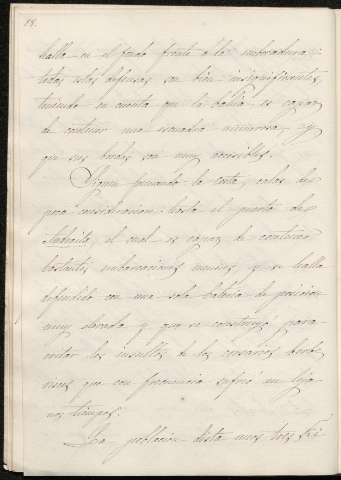 88.
halla en el fondo frente á la embocadura:
todas estas defensas son bien insignificantes,
teniendo en cuenta que la bahia es capaz
de contener una escuadra numerosa, y
que sus bordes son muy accesibles.
Sigue formando la costa, calas de
poca consideracion hasta el puerto de
Andraitx, el cual es capaz de contener
bastantes embarcaciones menores y se halla
defendido con una sola bateria de posicion
muy elevada y que se construyó para
evitar los insultos de los corsarios berbe
riscos que con frecuencia sufrió en leja
nos tiempos.
La poblacion dista unos tres Ki